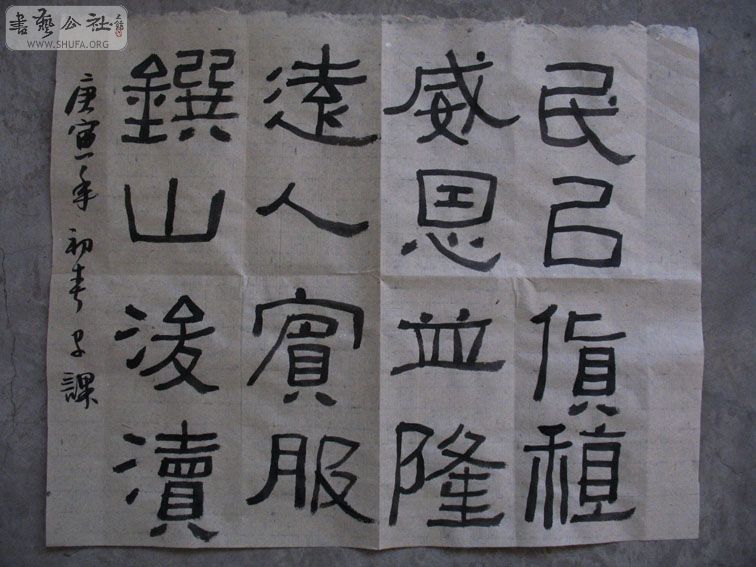 民㠯貨稙
威恩並隆
遠人賓服
鐉山浚瀆
庚寅年初春早課
書藝公社
WWW.SHUFA.ORG